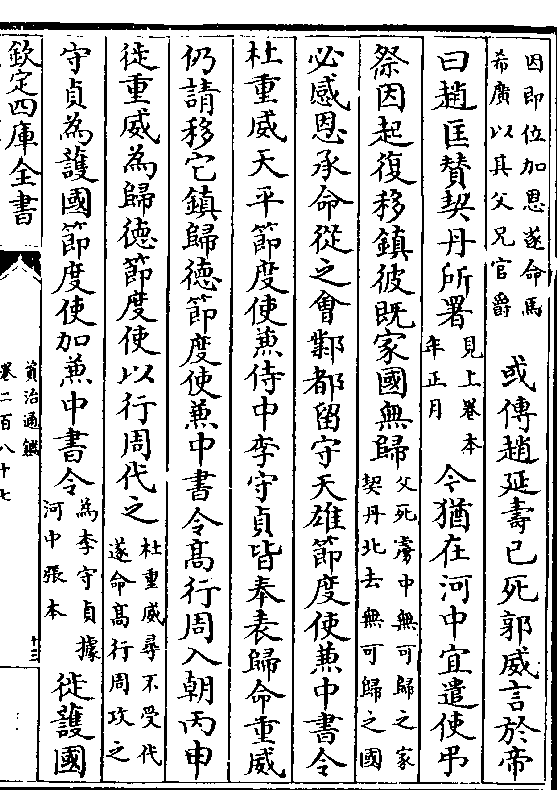 因即位加恩遂命馬
希廣以其父兄官爵
或傳趙延壽已死郭威言於帝
曰趙匡賛契丹所署
見上卷本
年正月
今猶在河中宜遣使弔
祭因起復移鎮彼既家國無歸
父死虜中無可歸之家
契丹北去無可歸之國
必感恩承命從之會鄴都留守天雄節度使兼中書令
杜重威天平節度使兼侍中李守貞皆奉表歸命重威
仍請移它鎮歸德節度使兼中書令髙行周入朝丙申
徙重威為歸德節度使以行周代之
杜重威尋不受代
遂命髙行周攻之
守貞為護國節度使加兼中書令
為李守貞據
河中張本
徙護國
欽定四庫全書
資治通鑑
卷二百八十七
十三